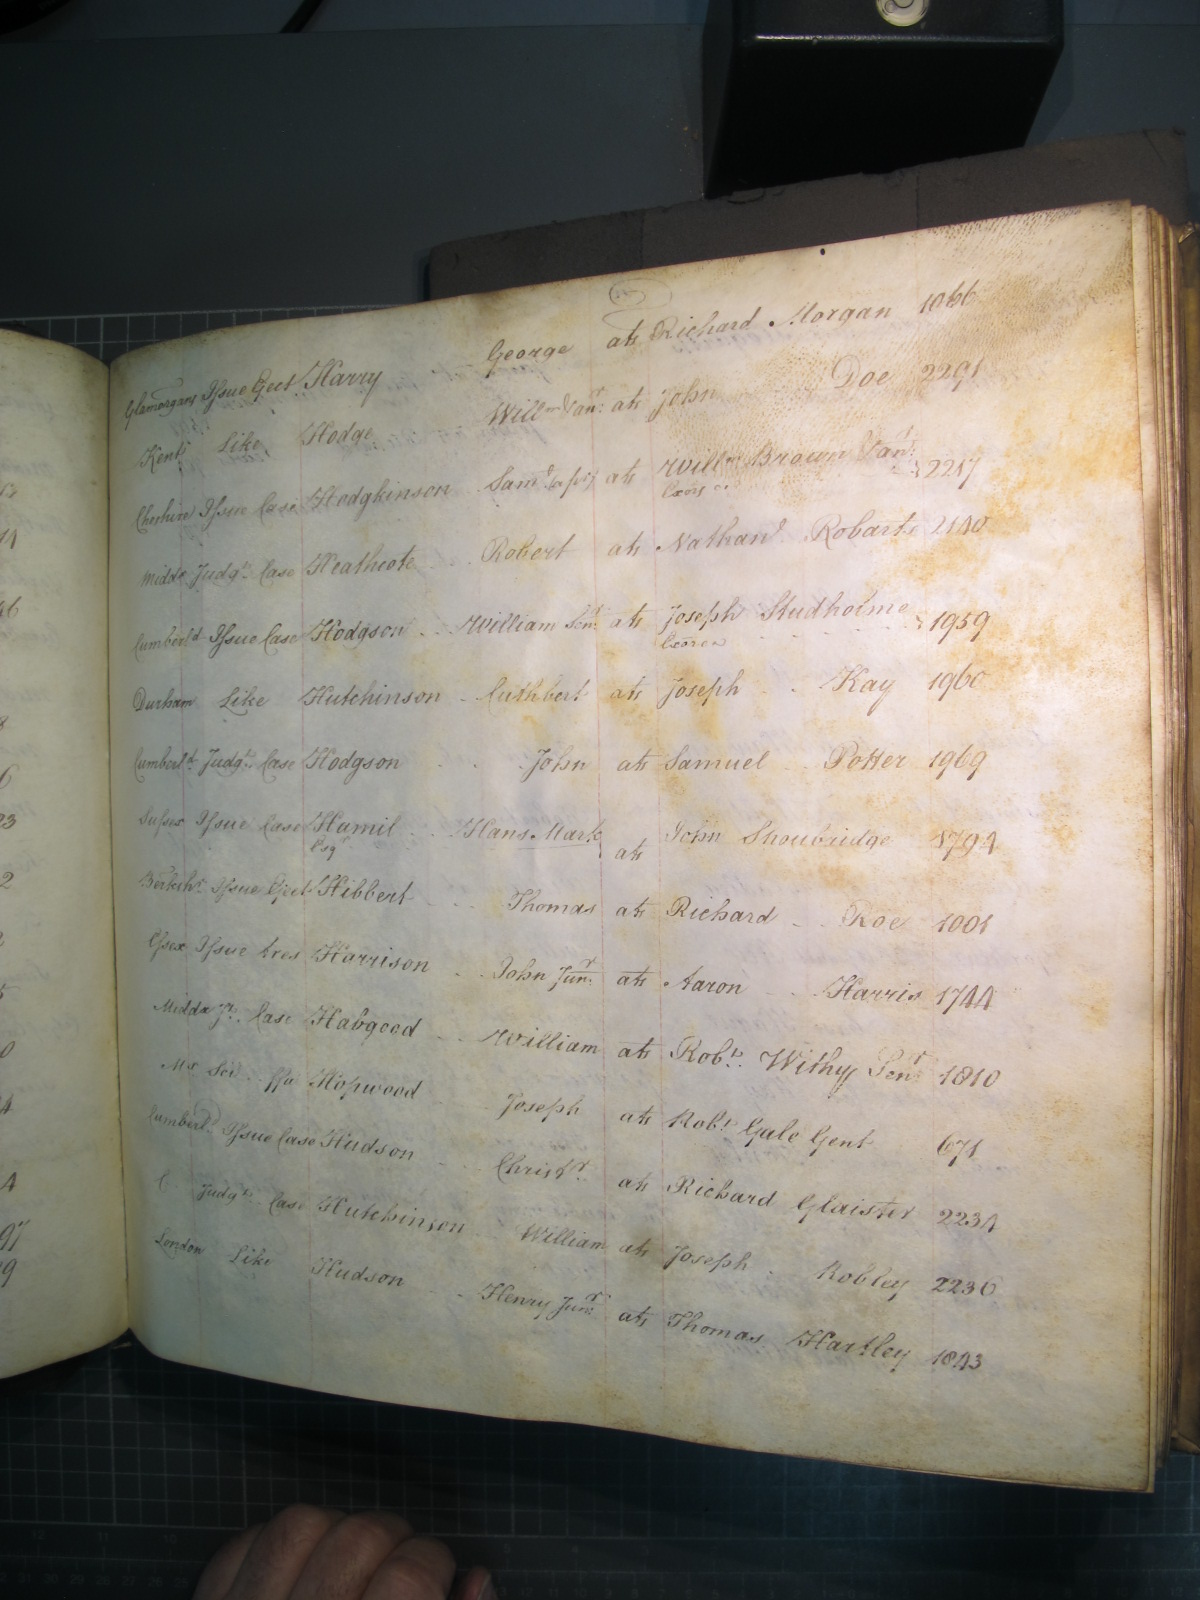 Glamorgans Issue Eject Harry George ats Richard Morgan 1066
Kent Like Hodge Willm Van: ats John Doe 2291
Cheshire Issue Case Hodgkinson Saml ats Willm Brown Van: 2217
Exors &c
Middx Judgt Case Heathcote Robert ats Nathanl Robarts 2140
Cumberld Issue Case Hodgson William Senr ats Joseph Studholme 1959
Exorex
Durham Like Hutchinson Cuthbert ats Joseph Kay 1960
Cumberld Judgt Case Hodgson John ats Samuel Potter 1969
Sussex Issue Case Hamil Hans Mark ats John Shoubridge 1794
Esqr
Berkshr Issue Eject Hibbert Thomas ats Richard Roe 1001
Essex Issue tres Harrison John Junr ats Aaron Harris 1744
Middx Case Habgood William ats Robt Withy Senr 1810
Mx Sci ffa Hopwood Joseph ats Robt Gale Gent 671
Cumberld Issue Case Hudson Christr ats Richard Glaister 2234
Judgt Case Hutchinson William ats Joseph Robley 2230
London Like Hudson Henry Junr ats Thomas Hartley 1843